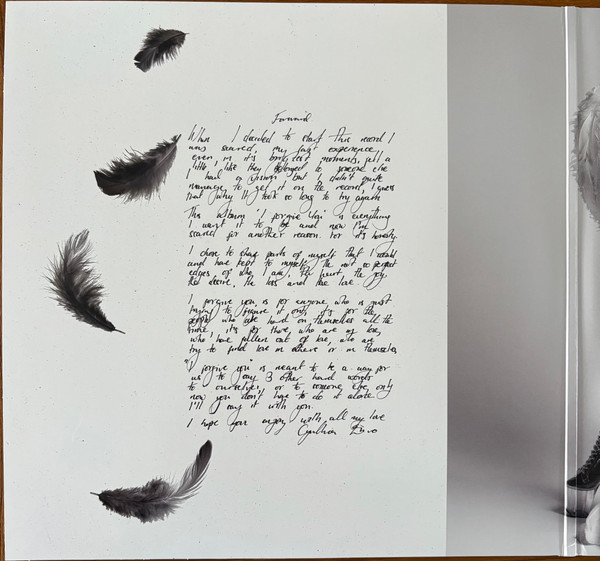 Forward
When I decided to start this record I
was scared, my first experience,
even in it's brightest moments, felt a
little like they belonged to someone else
I had a vision but I didn't quite
manage to get it on the record, I guess
that why it took so long to try again
This album "I forgive You" is everything
I want it to be and now I'm
scared for another reason. For it's honesty
I chose to share parts of myself that I would
and have kept to myself, the not so perfect
edges of who I am, the hurt, the joy,
the desire, the loss and the love.
I forgive you is for anyone who is just
trying to figure it out, it's for the
people who are hard on themselves all the
time, it's for those, who are in love,
who have fallen out of love, who are
try to find love in others or in themselves,
"I forgive you" is meant to be a way for
us to say 3 other hard words
to ourselves, or to someone else, only
now you don't have to do it alone.
I'll say it with you.
I hope you enjoy with all my love
Cynthia Erivo